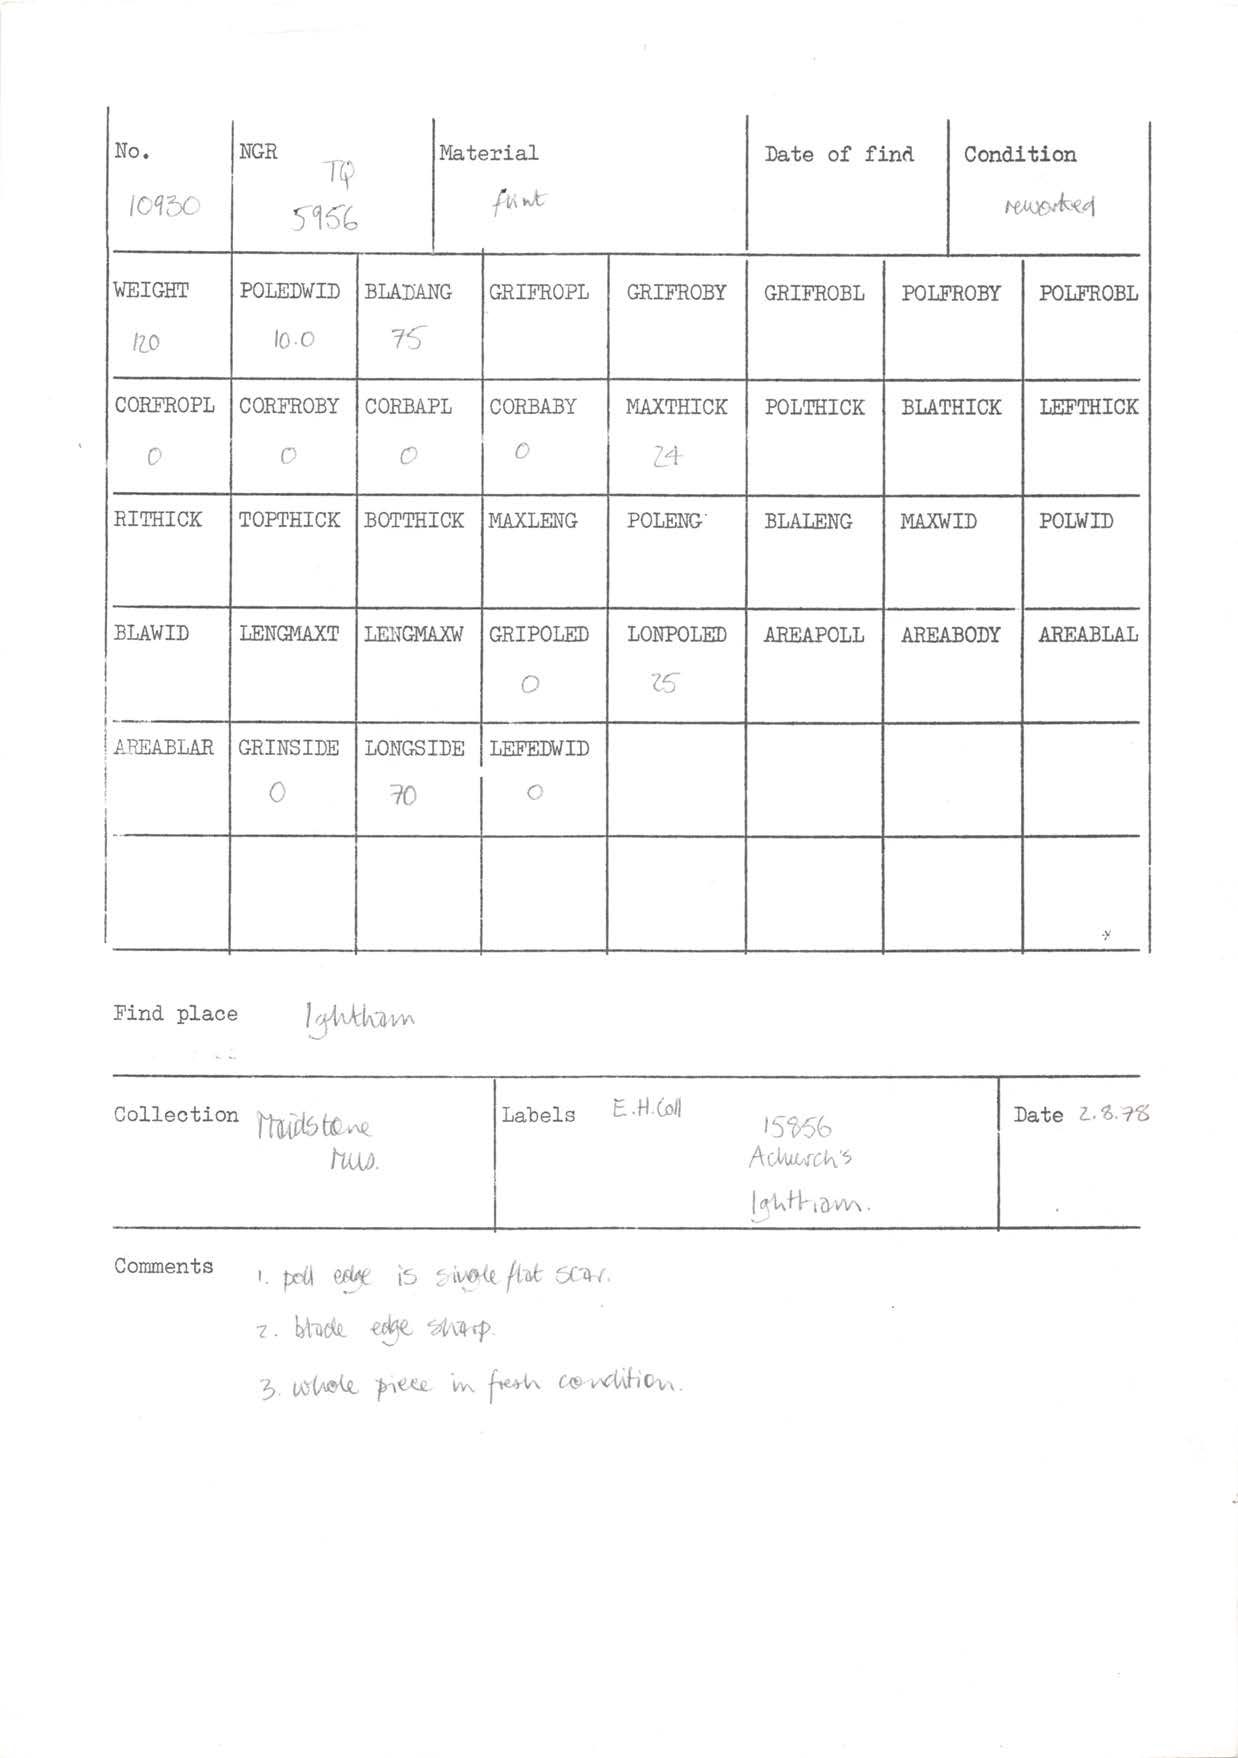 No. NGR Material Date of find Condition
10930 TQ 5956 flint reworked
WEIGHT POLEDWID BLADANG GRIFROPL GRIFROBY GRIFROBL POLFROBY POLFROBL
120 10.0 75
CORFROPL CORFROBY CORBAPL CORBABY MAXTHICK POLTHICK BLATHICK LEFTHICK
0 0 0 0 24
RITHICK TOPTHICK BOTTHICK MAXLENG POLENG BLALENG MAXWID POLWID
BLAWID LENGMAXT LENGMAXW GRIPOLED LONPOLED AREAPOLL AREABODY AREABLAL
0 25
AREABLAR GRINSIDE LONGSIDE LEFEDWID
0 70 0
Find place Ightham
Collection Maidstone Mus.
Labels E.H.Coll
15856
Achurch's
Ightham.
Date 2.8.78
Comments 1. poll edge is single flat scar.
2. blade edge sharp.
3. whole piece in fresh condition.